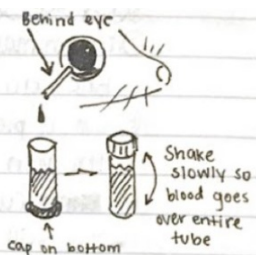 Behind eye
Shake
slowly so
blood goes
over entire
tube
cap on bottom